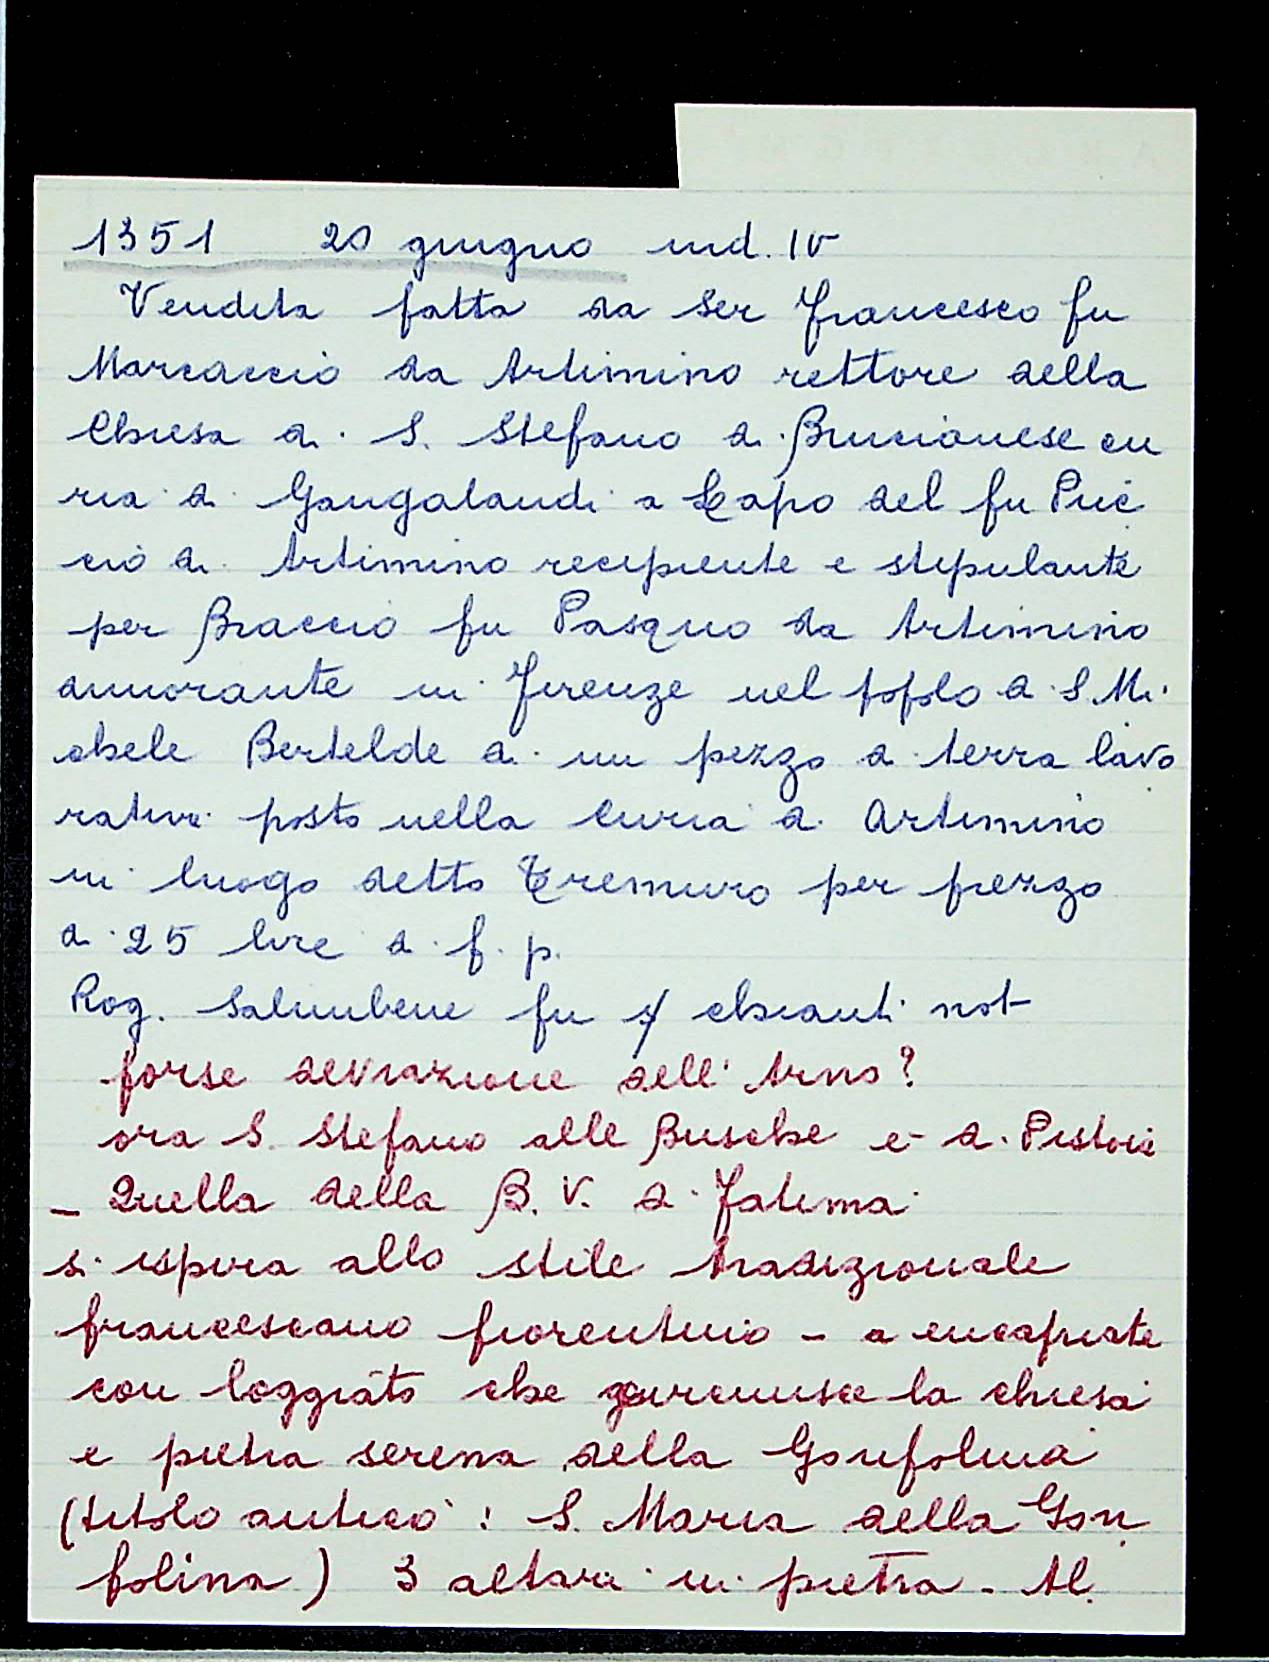 1351 20 giugno ind. IV
Vendita fatta da Ser Francesco fu
Marcaccio da Artimino rettore della
Chiesa di S. Stefano di Brucianese cu
ria di Gangalandi a Lapo del fu Puc
cio di Artimino recipiente e stipulante
per Braccio fu Pasquo da Artimino
dimorante in Firenze nel popolo di S. Mi
chele Bertelde di un pezzo di terra lavo
rativa posto nella Curia di Artimino
in luogo detto Tremuro per prezzo
di 25 lire di f. p.
Rog. Salimbene fu chianti not
forse deviazione dell'Arno?
ora S. Stefano alle Busche e di Pistoia
_ Quella della B. V. di Fatima
si ispira allo stile tradizionale
francescano fiorentino - a capriate
con loggiato che la chiesa
e pietra serena della Gonfolina
(titolo antico: S. Maria della Gon
folina) 3 altari in pietra - Al.